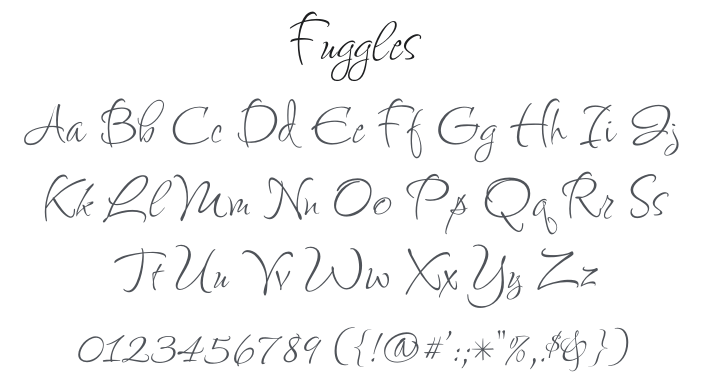 Fuggles
Aa Bb Cc Dd Ee Ff Gg Hh Ii Jj
Kk Ll Mm Nn Oo Pp Qq Rr Ss
Tt Uu Vv Ww Xx Yy Zz
0123456789 ({!@#':;*"%,.$&})